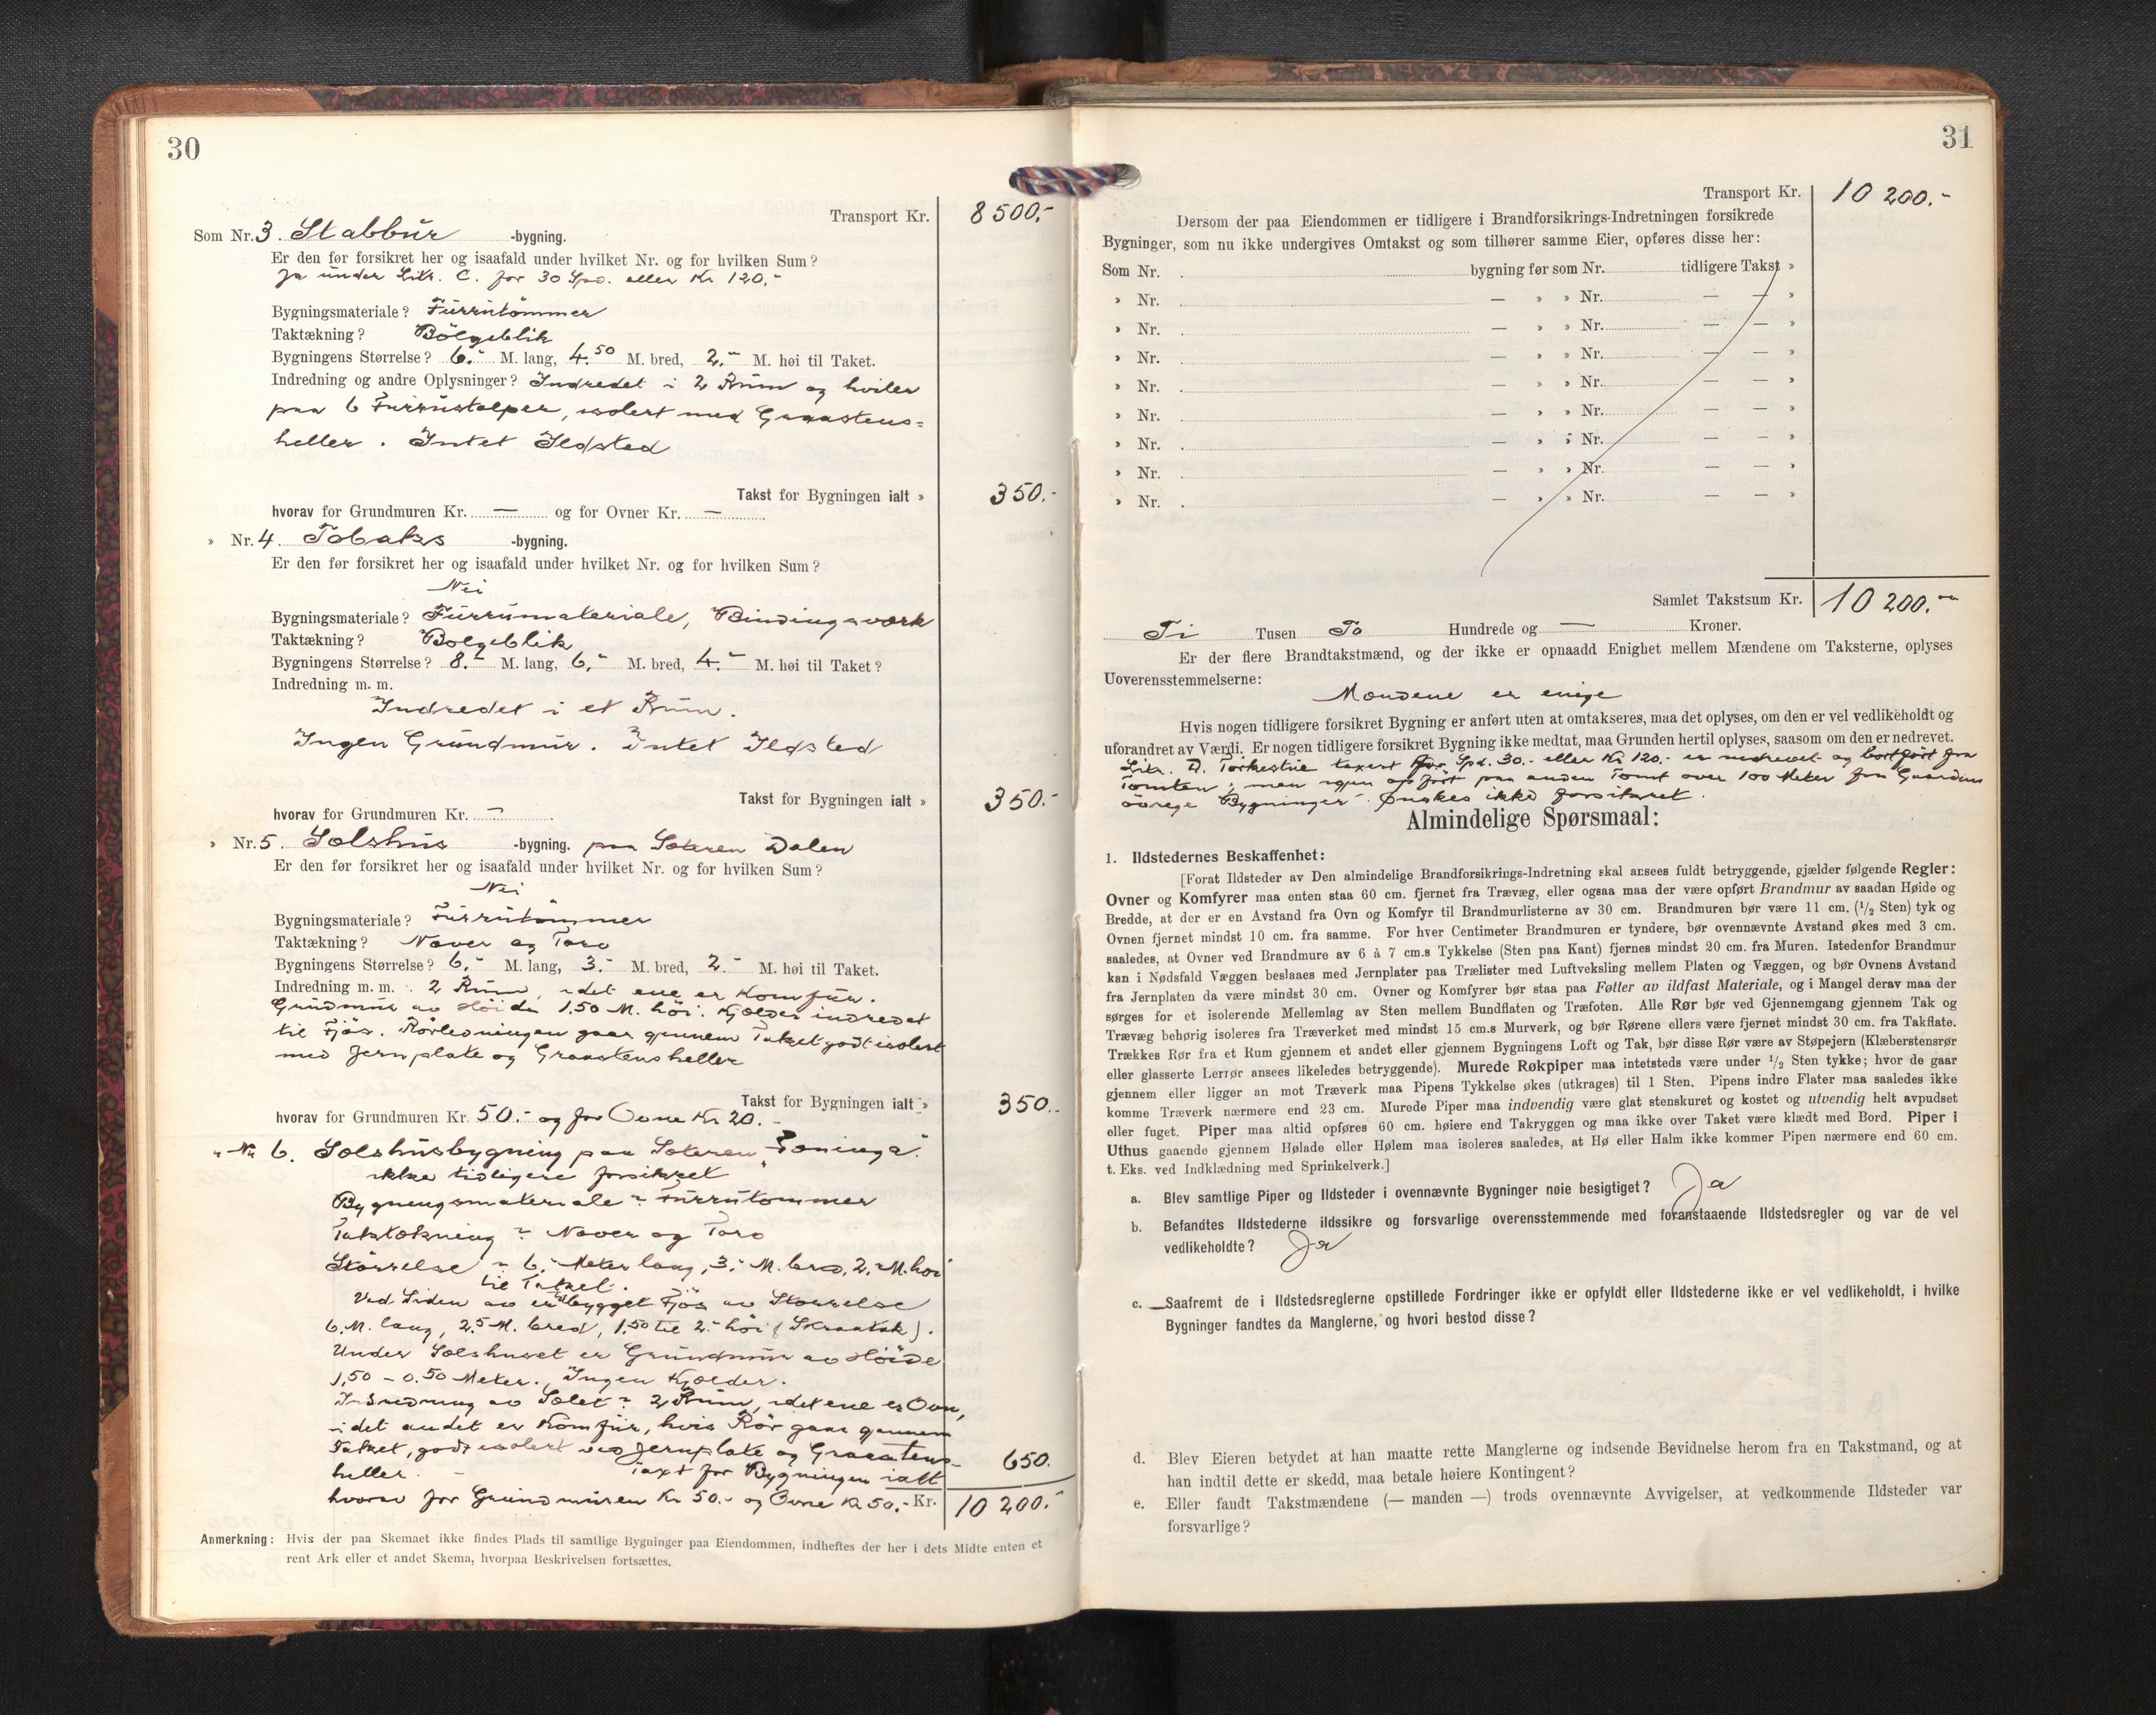 30
Transport Kr. 8 500,-
Som Nr. 3. Stabbur -bygning.
Er den før forsikret her og isaafald under hvilket Nr. og for hvilken Sum?
Ja under Litr. C. for 30 Spd. eller Kr 120.-
Bygningsmateriale? Furrutømmer
Taktækning? Bölgeblik
Bygningens Størrelse? 6.- M. lang, 4.50 M. bred, 2.- M. høi til Taket.
Indredning og andre Oplysninger? Indredet i 2 Rum og hviler
paa 6 Furrustolper, isolert med Graastens=
heller. Intet Ildsted
Takst for Bygningen ialt » 350.-
hvorav for Grundmuren Kr. — og for Ovner Kr. —
» Nr. 4. Tobaks -bygning.
Er den før forsikret her og isaafald under hvilket Nr. og for hvilken Sum?
Nei
Bygningsmateriale? Furrumateriale, Bindingsværk
Taktækning? Bölgeblik
Bygningens Størrelse? 8.- M. lang, 6.- M. bred, 4.- M. høi til Taket?
Indredning m. m.
Indredet i et Rum.
Ingen Grundmur. Intet Ildsted
Takst for Bygningen ialt » 350.-
hvorav for Grundmuren Kr. —
» Nr. 5. Sælshus -bygning. paa Sæteren Dalen
Er den før forsikret her og isaafald under hvilket Nr. og for hvilken Sum?
Nei
Bygningsmateriale? Furrutømmer
Taktækning? Næver og Torv
Bygningens Størrelse? 6.- M. lang, 3.- M. bred, 2.- M. høi til Taket.
Indredning m. m. 2 Rum, i det ene er Komfur.
Grundmur av Höide 1.50 M. höi. Kjælder indredet
til Fjös. Rörledningen gaar gjennem Taket godt isolert
med Jernplate og Graastensheller
Takst for Bygningen ialt » 350.-
hvorav for Grundmuren Kr. 50.- og for Ovne Kr 20.-
" Nr 6. Sælshusbygning paa Sæteren "Toninga".
ikke tidligere forsikret
Bygningsmateriale? Furrutømmer
Taktækning? Næver og Torv
Störrelse? 6.- Meter lang, 3.- M. bred, 2.- M. höi
til Taket.
Ved Siden av er tilbygget Fjös av Störrelse
6. M. lang, 2.5 M. bred, 1.50 til 2.- höi (Skraatak).
Under Sælshuset er Grundmur av Höide
1,50 - 0.50 Meter. Ingen Kjælder.
Indredning av Sælet? 2 Rum, i det ene er Ovn,
i det andet er Komfur, hvis Rör gaar gjennem
Taket, godt isolert ved Jernplate og Graastens-
heller. Taxt for Bygningen ialt 650.
hvorav for Grundmuren Kr 50.- og Ovne Kr 50.- Kr. 10 200.-
Anmerkning: Hvis der paa Skemaet ikke findes Plads til samtlige Bygninger paa Eiendommen, indheftes der her i dets Midte enten et
rent Ark eller et andet Skema, hvorpaa Beskrivelsen fortsættes.
31
Transport Kr. 10 200.-
Dersom der paa Eiendommen er tidligere i Brandforsikrings-Indretningen forsikrede
Bygninger, som nu ikke undergives Omtakst og som tilhører samme Eier, opføres disse her:
Som Nr. bygning før som Nr. tidligere Takst »
» Nr. — » » Nr. — — »
» Nr. — » » Nr. — — »
» Nr. — » » Nr. — — »
» Nr. — » » Nr. — — »
» Nr. — » » Nr. — — »
» Nr. — » » Nr. — — »
» Nr. — » » Nr. — — »
» Nr. — » » Nr. — — »
Samlet Takstsum Kr. 10 200.-
Ti Tusen To Hundrede og — Kroner.
Er der flere Brandtakstmænd, og der ikke er opnaadd Enighet mellem Mændene om Taksterne, oplyses
Uoverensstemmelserne:
Mændene er enige
Hvis nogen tidligere forsikret Bygning er anført uten at omtakseres, maa det oplyses, om den er vel vedlikeholdt og
uforandret av Værdi. Er nogen tidligere forsikret Bygning ikke medtat, maa Grunden hertil oplyses, saasom om den er nedrevet.
Litr. D. Torkestue taxert for Spd. 30.- eller Kr 120.- er nedrevet og bortfört fra
Tomten, men igjen opfört paa anden Tomt over 100 Meter fra Gaardens
övrige Bygninger. Önskes ikke forsikret.
Almindelige Spørsmaal:
1. Ildstedernes Beskaffenhet:
[Forat Ildsteder av Den almindelige Brandforsikrings-Indretning skal ansees fuldt betryggende, gjælder følgende Regler:
Ovner og Komfyrer maa enten staa 60 cm. fjernet fra Trævæg, eller ogsaa maa der være opført Brandmur av saadan Høide og
Bredde, at der er en Avstand fra Ovn og Komfyr til Brandmurlisterne av 30 cm. Brandmuren bør være 11 cm. (1/2 Sten) tyk og
Ovnen fjernet mindst 10 cm. fra samme. For hver Centimeter Brandmuren er tyndere, bør ovennævnte Avstand økes med 3 cm.
saaledes, at Ovner ved Brandmure av 6 à 7 cm.s Tykkelse (Sten paa Kant) fjernes mindst 20 cm. fra Muren. Istedenfor Brandmur
kan i Nødsfald Væggen beslaaes med Jernplater paa Trælister med Luftveksling mellem Platen og Væggen, og bør Ovnens Avstand
fra Jernplaten da være mindst 30 cm. Ovner og Komfyrer bør staa paa Føtter av ildfast Materiale, og i Mangel derav maa der
sørges for et isolerende Mellemlag av Sten mellem Bundflaten og Træfoten. Alle Rør bør ved Gjennemgang gjennem Tak og
Trævæg behørig isoleres fra Træverket med mindst 15 cm.s Murverk, og bør Rørene ellers være fjernet mindst 30 cm. fra Takflate.
Trækkes Rør fra et Rum gjennem et andet eller gjennem Bygningens Loft og Tak, bør disse Rør være av Støpejern (Klæberstensrør
eller glasserte Lerrør ansees likeledes betryggende). Murede Røkpiper maa intetsteds være under 1/2 Sten tykke; hvor de gaar
gjennem eller ligger an mot Træverk maa Pipens Tykkelse økes (utkrages) til 1 Sten. Pipens indre Flater maa saaledes ikke
komme Træverk nærmere end 23 cm. Murede Piper maa indvendig være glat stenskuret og kostet og utvendig helt avpudset
eller fuget. Piper maa altid opføres 60 cm. høiere end Takryggen og maa ikke over Taket være klædt med Bord. Piper i
Uthus gaaende gjennem Hølade eller Hølem maa isoleres saaledes, at Hø eller Halm ikke kommer Pipen nærmere end 60 cm.
t. Eks. ved Indklædning med Sprinkelverk.]
a. Blev samtlige Piper og Ildsteder i ovennævnte Bygninger nøie besigtiget? Ja
b. Befandtes Ildstederne ildssikre og forsvarlige overensstemmende med foranstaaende Ildstedsregler og var de vel
vedlikeholdte? Ja
c. Saafremt de i Ildstedsreglerne opstillede Fordringer ikke er opfyldt eller Ildstederne ikke er vel vedlikeholdt, i hvilke
Bygninger fandtes da Manglerne, og hvori bestod disse?
d. Blev Eieren betydet at han maatte rette Manglerne og indsende Bevidnelse herom fra en Takstmand, og at
han indtil dette er skedd, maa betale høiere Kontingent?
e. Eller fandt Takstmændene (— manden —) trods ovennævnte Avvigelser, at vedkommende Ildsteder var
forsvarlige?